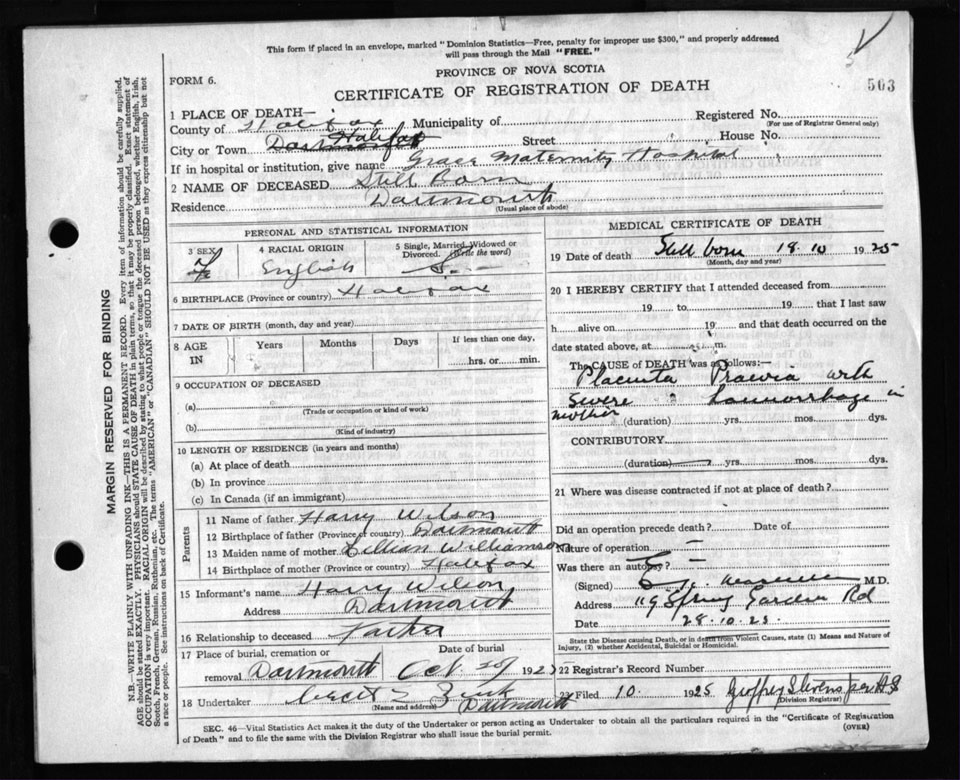 This form if placed in an envelope, marked "Dominion Statistics—Free, penalty for improper use $300," and properly addressed
will pass through the Mail "FREE."
PROVINCE OF NOVA SCOTIA
503
FORM 6.
CERTIFICATE OF REGISTRATION OF DEATH
1 PLACE OF DEATH—
Registered No.
(For use of Registrar General only)
County of Halifax Municipality of
City or Town Dartmouth Halifax Street House No.
If in hospital or institution, give name Grace Maternity Hospital
2 NAME OF DECEASED Still Born
Residence Dartmouth
(Usual place of abode)
PERSONAL AND STATISTICAL INFORMATION
3 SEX 4 RACIAL ORIGIN 5 Single, Married, Widowed or
Divorced. (Write the word)
F English S.
6 BIRTHPLACE (Province or country) Halifax
7 DATE OF BIRTH (month, day and year)
8 AGE IN Years Months Days If less than one day,
hrs. or min.
9 OCCUPATION OF DECEASED
(a)
(Trade or occupation or kind of work)
(b)
(Kind of industry)
10 LENGTH OF RESIDENCE (in years and months)
(a) At place of death
(b) In province
(c) In Canada (if an immigrant)
Parents
11 Name of father Harry Wilson
12 Birthplace of father (Province or country) Dartmouth
13 Maiden name of mother Lillian Williamson
14 Birthplace of mother (Province or country) Halifax
15 Informant's name Harry Wilson
Address Dartmouth
16 Relationship to deceased Father
17 Place of burial, cremation or Date of burial
removal Dartmouth Oct 1925
18 Undertaker Zink
(Name and address) Dartmouth
MEDICAL CERTIFICATE OF DEATH
19 Date of death Still born 18 10 1925
(Month, day and year)
20 I HEREBY CERTIFY that I attended deceased from
19 to 19 that I last saw
h alive on 19 and that death occurred on the
date stated above, at m.
The CAUSE OF DEATH was as follows:—
Placenta Praevia with
severe haemorrhage in
mother
(duration) yrs. mos. dys.
CONTRIBUTORY
(duration) yrs. mos. dys.
21 Where was disease contracted if not at place of death?
Did an operation precede death? Date of
Nature of operation —
Was there an autopsy? —
(Signed) M.D.
Address 119 Spring Garden Rd
Date 28.10.25.
State the Disease causing Death, or in death from Violent Causes, state (1) Means and Nature of
Injury, (2) whether Accidental, Suicidal or Homicidal.
22 Registrar's Record Number
Filed 10 1925 Geoffrey Stevens per
(Division Registrar)
SEC. 46—Vital Statistics Act makes it the duty of the Undertaker or person acting as Undertaker to obtain all the particulars required in the "Certificate of Registration
of Death" and to file the same with the Division Registrar who shall issue the burial permit. (OVER)
MARGIN RESERVED FOR BINDING
N.B.—WRITE PLAINLY WITH UNFADING INK—THIS IS A PERMANENT RECORD. Every item of information should be carefully supplied.
AGE should be stated EXACTLY. PHYSICIANS should STATE CAUSE OF DEATH in plain terms, so that it may be properly classified. Exact statement of
OCCUPATION is very important. RACIAL ORIGIN will be described by stating to what people or tongue the deceased person belonged, whether English, Irish,
Scotch, French, German, Russian, Ruthenian, etc. The terms "AMERICAN" or "CANADIAN" SHOULD NOT BE USED as they express citizenship but not
a race or people. See instructions on back of Certificate.